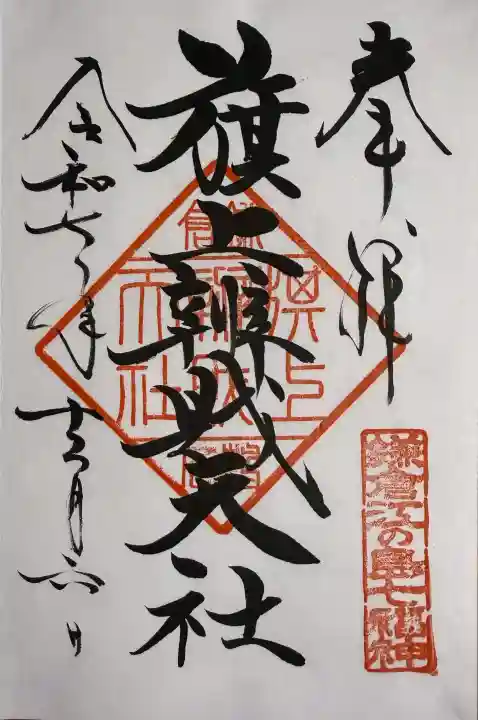 奉拝
鎌倉江の島七福神
旗上辨財天社
鎌倉
旗上
天社
令和七年十二月六日